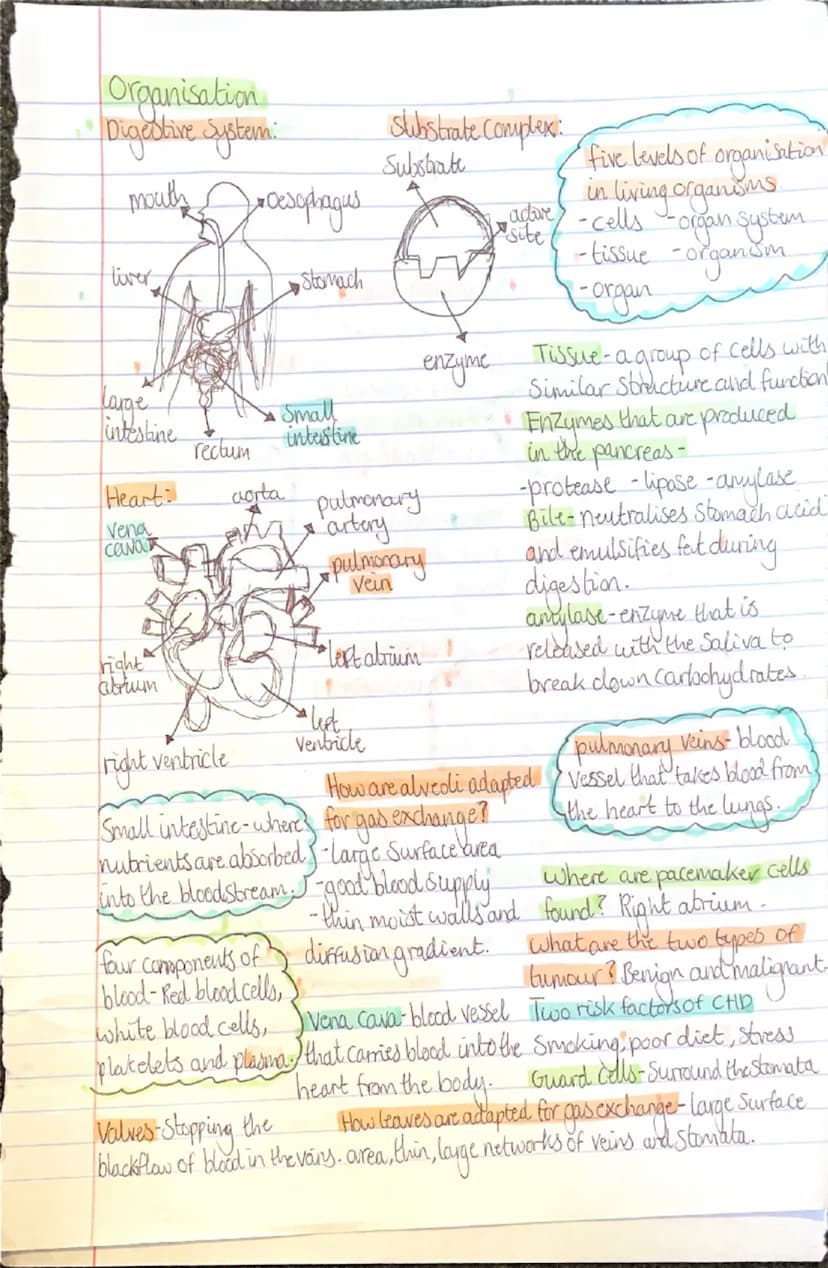 Organisation
Digestive System:
mouth
oesophagus
liver
stomach
large
intestine
rectum
Small
intestine
Substrate Complex:
Substrate
active
site
enzyme
five levels of organisation
in living organisms
-cells -organ system
-tissue -organism
-organ
Tissue-a group of cells with
Similar Structure and function
Enzymes that are produced
in the pancreas-
-protease -lipose -amylase
Bile-neutralises Stomach acid
and emulsifies fat during
digestion.
amylase-enzyme that is
released with the Saliva to
break down carbohydrates.
Heart:
aorta
pulmonary
artery
vena
cava
pulmonary
vein
right
atrium
left atrium
left
ventricle
right ventricle
pulmonary veins-blood
vessel that takes blood from
the heart to the lungs.
How are alveoli adapted
for gas exchange?
-large Surface area
-good blood supply
-thin moist walls and
diffusion gradient.
Small intestine-where
nutrients are absorbed
into the bloodstream.
four components of
blood-Red blood cells,
white blood cells,
platelets and plasma.
Vena cava-blood vessel
that carries blood into the
heart from the body.
where are pacemaker cells
found? Right atrium.
what are the two types of
tumour? Benign and malignant.
Two risk factors of CHD
Smoking, poor diet, Stress
Guard cells-Surround the Stomata
Valves-Stopping the
blackflow of blood in the vains.
How leaves are adapted for gas exchange-large Surface
area, thin, large networks of veins and Stomata.